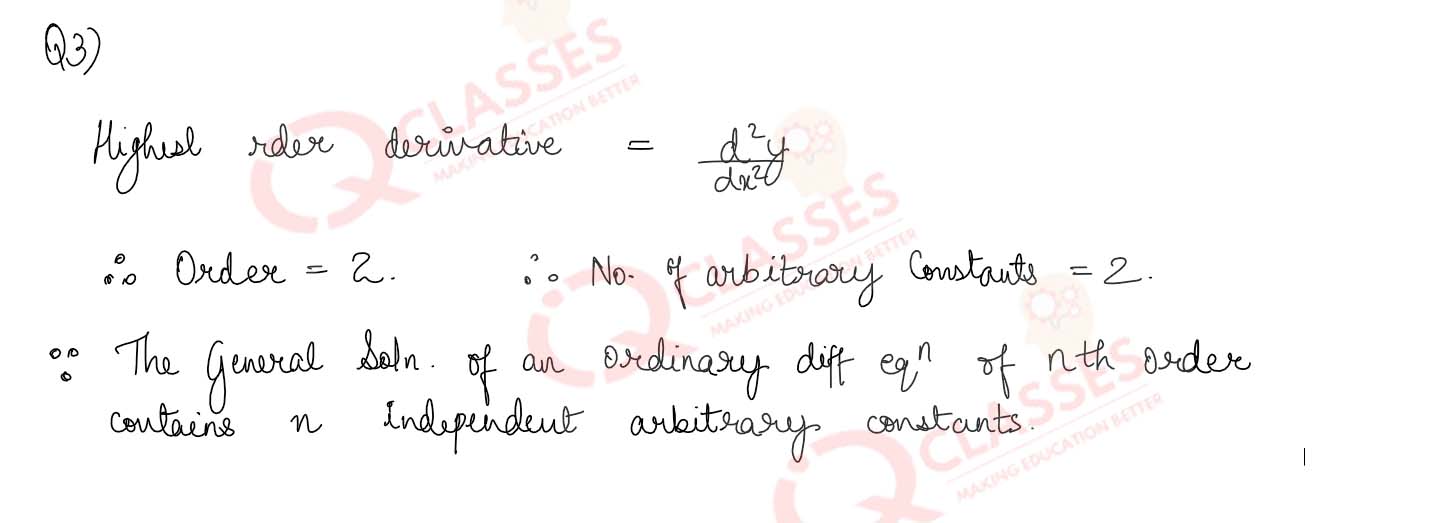 Q3)
Highest rder derivative = d²y/dx²
∴ Order = 2. ∴ No. of arbitrary Constants = 2.
∵ The General Soln. of an ordinary diff eqⁿ of nth order
contains n independent arbitrary constants.
CLASSES
MAKING EDUCATION BETTER
CLASSES
MAKING EDUCATION BETTER
CLASSES
MAKING EDUCATION BETTER